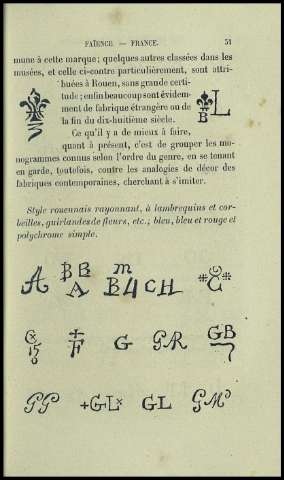 FAÏENCE. — FRANCE. 51
mune à cette marque; quelques autres classées dans les
musées, et celle ci-contre particulièrement, sont attri-
buées à Rouen, sans grande certi-
tude; enfin beaucoup sont évidem-
ment de fabrique étrangère ou de
la fin du dix-huitième siècle.
B L
Ce qu'il y a de mieux à faire,
quant à présent, c'est de grouper les mo-
nogrammes connus selon l'ordre du genre, en se tenant
en garde, toutefois, contre les analogies de décor des
fabriques contemporaines, cherchant à s'imiter.
Style rouennais rayonnant, à lambrequins et cor-
beilles, guirlandes de fleurs, etc.; bleu, bleu et rouge et
polychrome simple.
A BB A m B4 CH
F G GR GB
GG +GLx GL GM